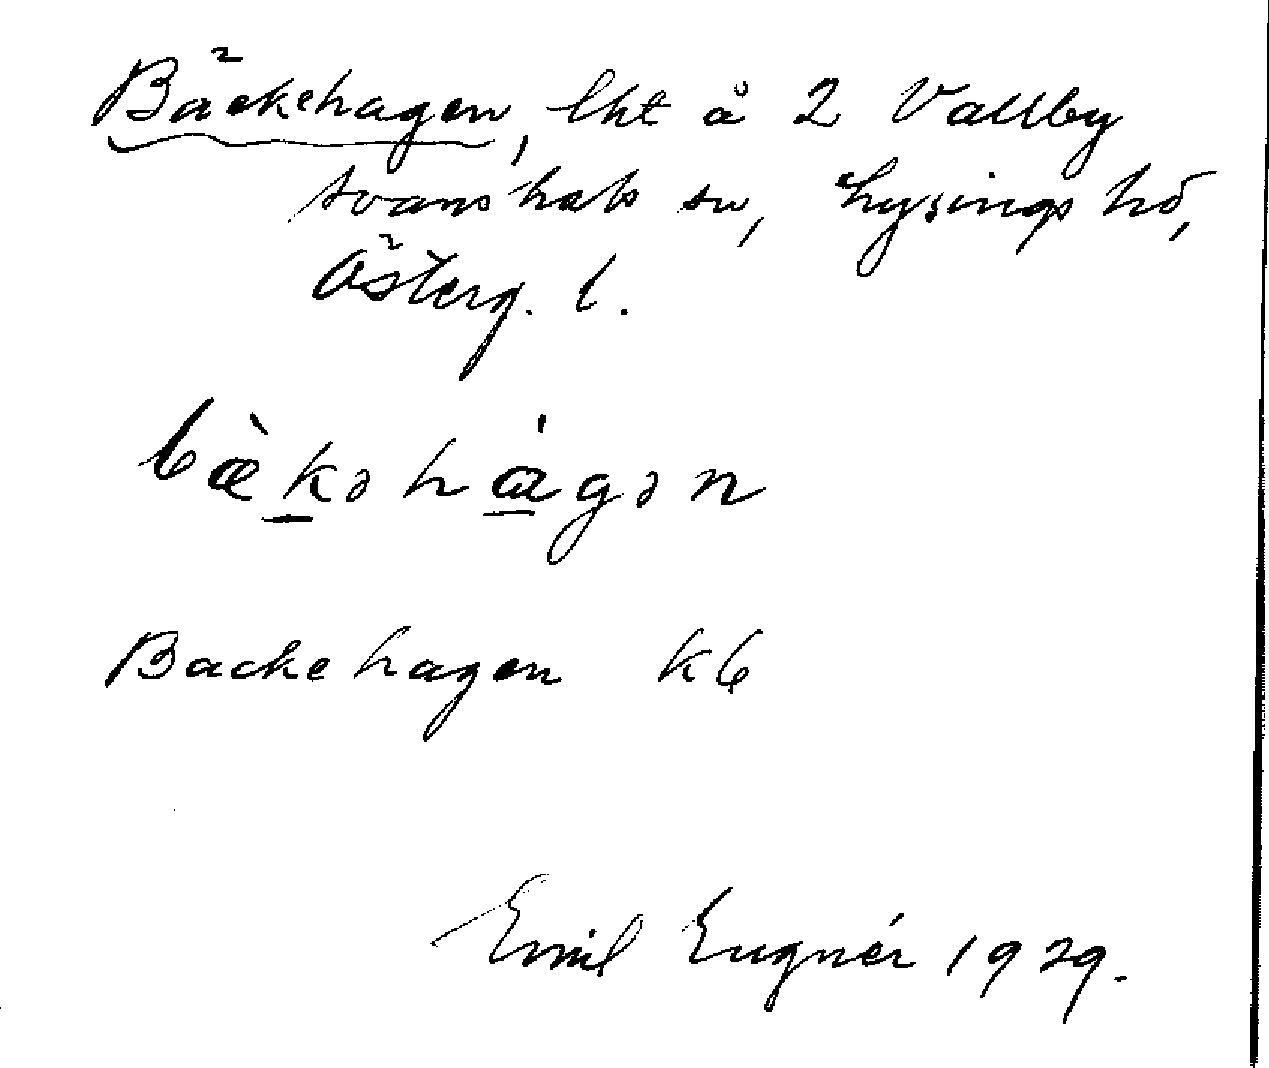 Bäckehagen, lht å 2 Vallby
Svanshals sn, Lysings hd,
Österg. l.
bæ̀kəhágən
Backehagen kb
Emil Eugnér 1929.